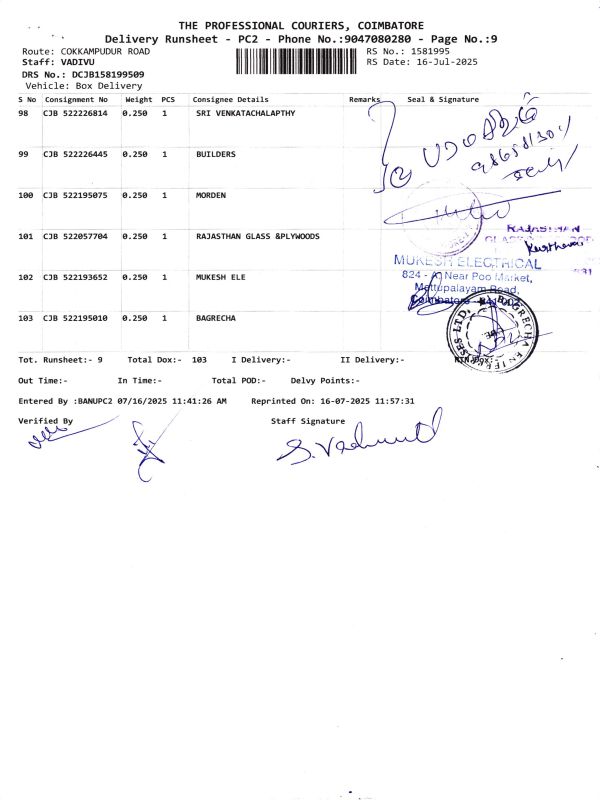 THE PROFESSIONAL COURIERS, COIMBATORE
Delivery Runsheet - PC2 - Phone No.:9047080280 - Page No.:9
Route: COKKAMPUDUR ROAD
RS No.: 1581995
Staff: VADIVU
RS Date: 16-Jul-2025
DRS No.: DCJB158199509
Vehicle: Box Delivery
S No Consignment No Weight PCS Consignee Details Remarks Seal & Signature
98 CJB 522226814 0.250 1 SRI VENKATACHALAPTHY
99 CJB 522226445 0.250 1 BUILDERS
100 CJB 522195075 0.250 1 MORDEN
101 CJB 522057704 0.250 1 RAJASTHAN GLASS &PLYWOODS
RAJASTHAN
102 CJB 522193652 0.250 1 MUKESH ELE
MUKESH ELECTRICAL
824 - A, Near Poo Market,
Mettupalayam Road,
Coimbatore
103 CJB 522195010 0.250 1 BAGRECHA
BAGRECHA ENTERPRISES LTD.
Tot. Runsheet:- 9 Total Dox:- 103 I Delivery:- II Delivery:-
Out Time:- In Time:- Total POD:- Delvy Points:-
Entered By :BANUPC2 07/16/2025 11:41:26 AM Reprinted On: 16-07-2025 11:57:31
Verified By Staff Signature
S. Vadivu